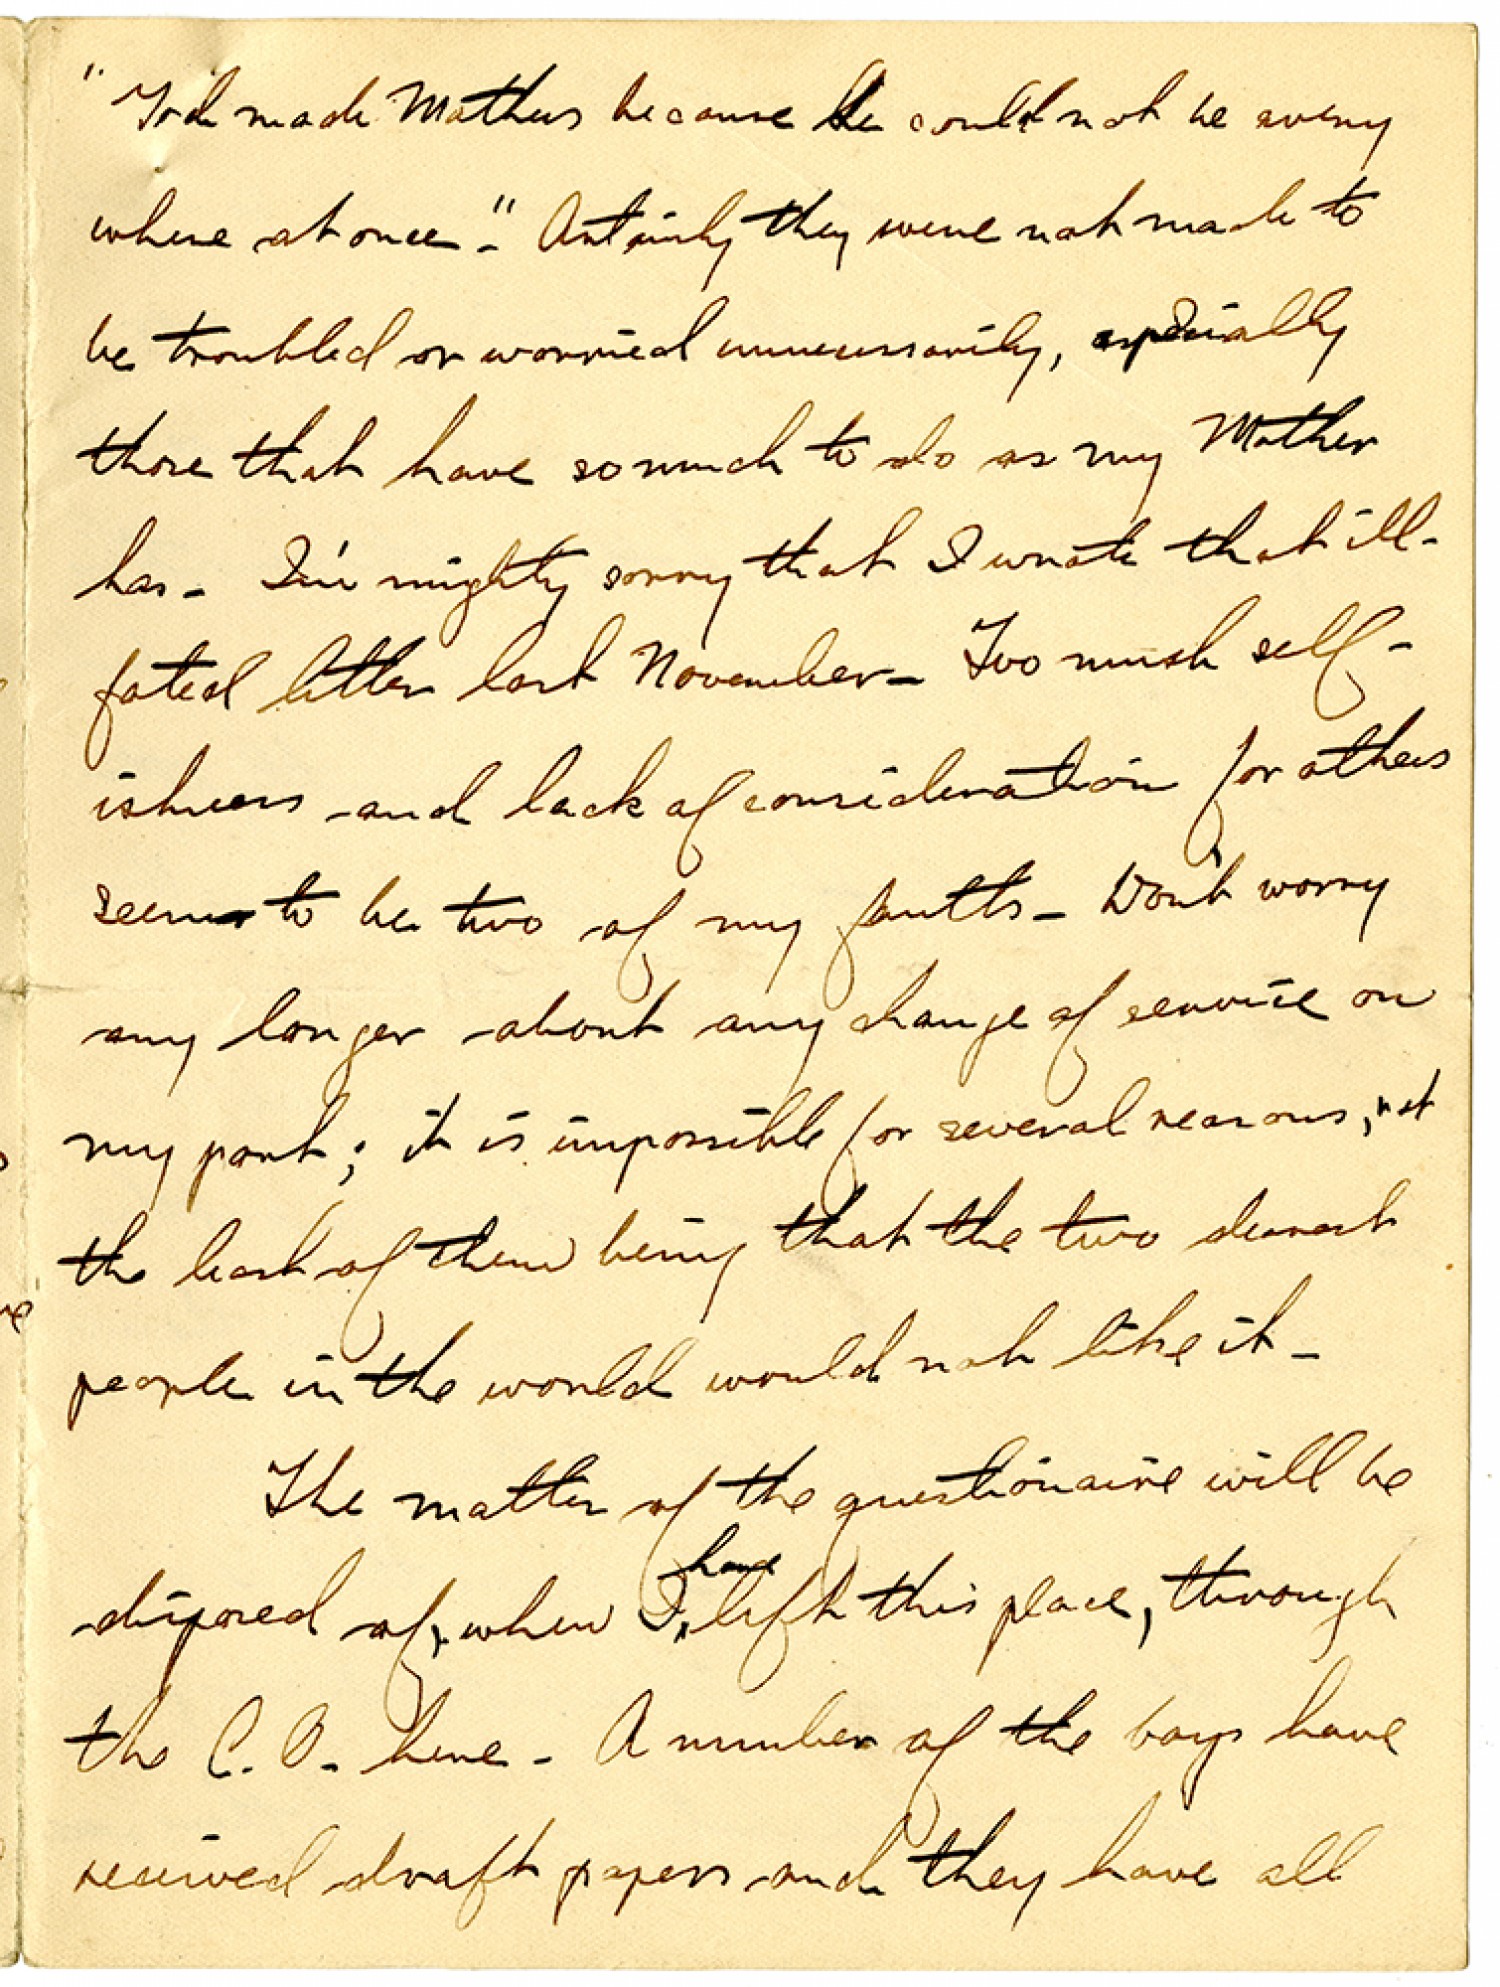 "God made Mothers because He could not be every
where at once-" Certainly they were not made to
be troubled or worried unnecessarily, especially
those that have so much to do as my Mother
has- I'm mighty sorry that I wrote that ill-
fated letter last November- Too much self-
ishness and lack of consideration for others
seems to be two of my faults- Don't worry
any longer about any change of service on
my part; it is impossible for several reasons, not
the least of them being that the two dearest
people in the world would not like it-
The matter of the questionaire will be
disposed of, when I have left this place, through
the C.O. here- A number of the boys have
received draft papers and they have all